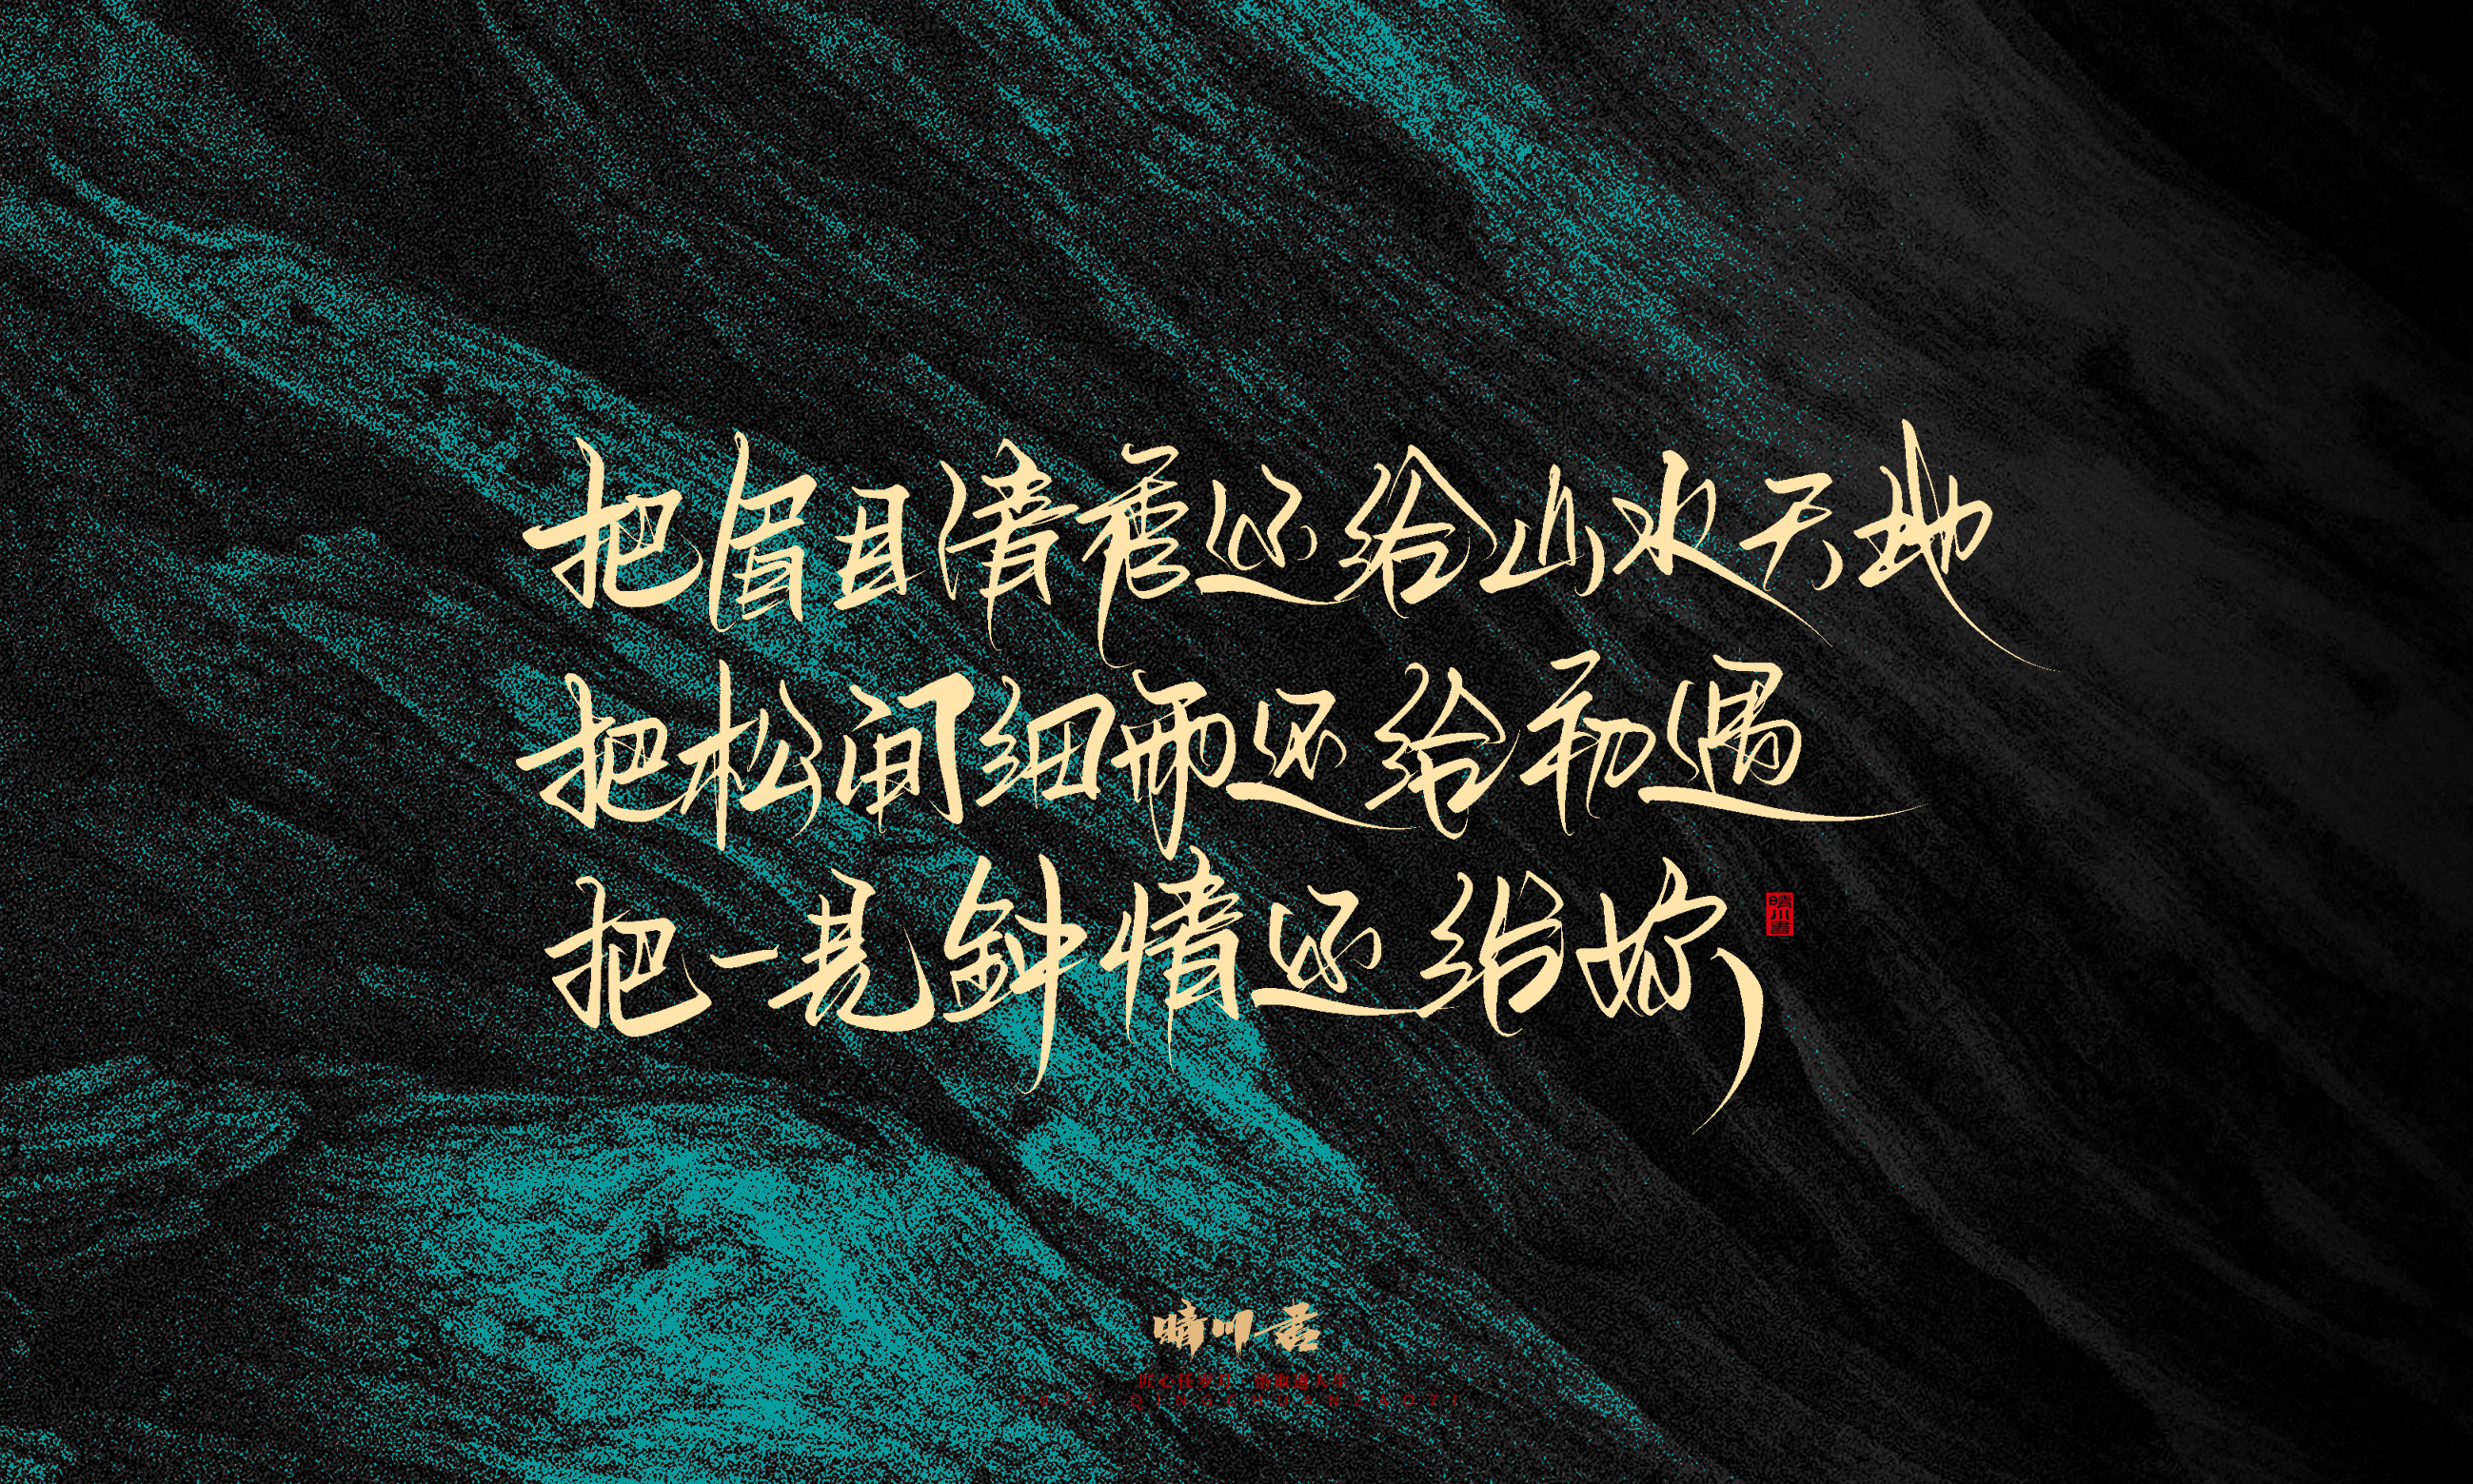 把眉目清秀还给山水天地
把松间细雨还给初遇
把一见钟情还给妳
晴川書
晴川君